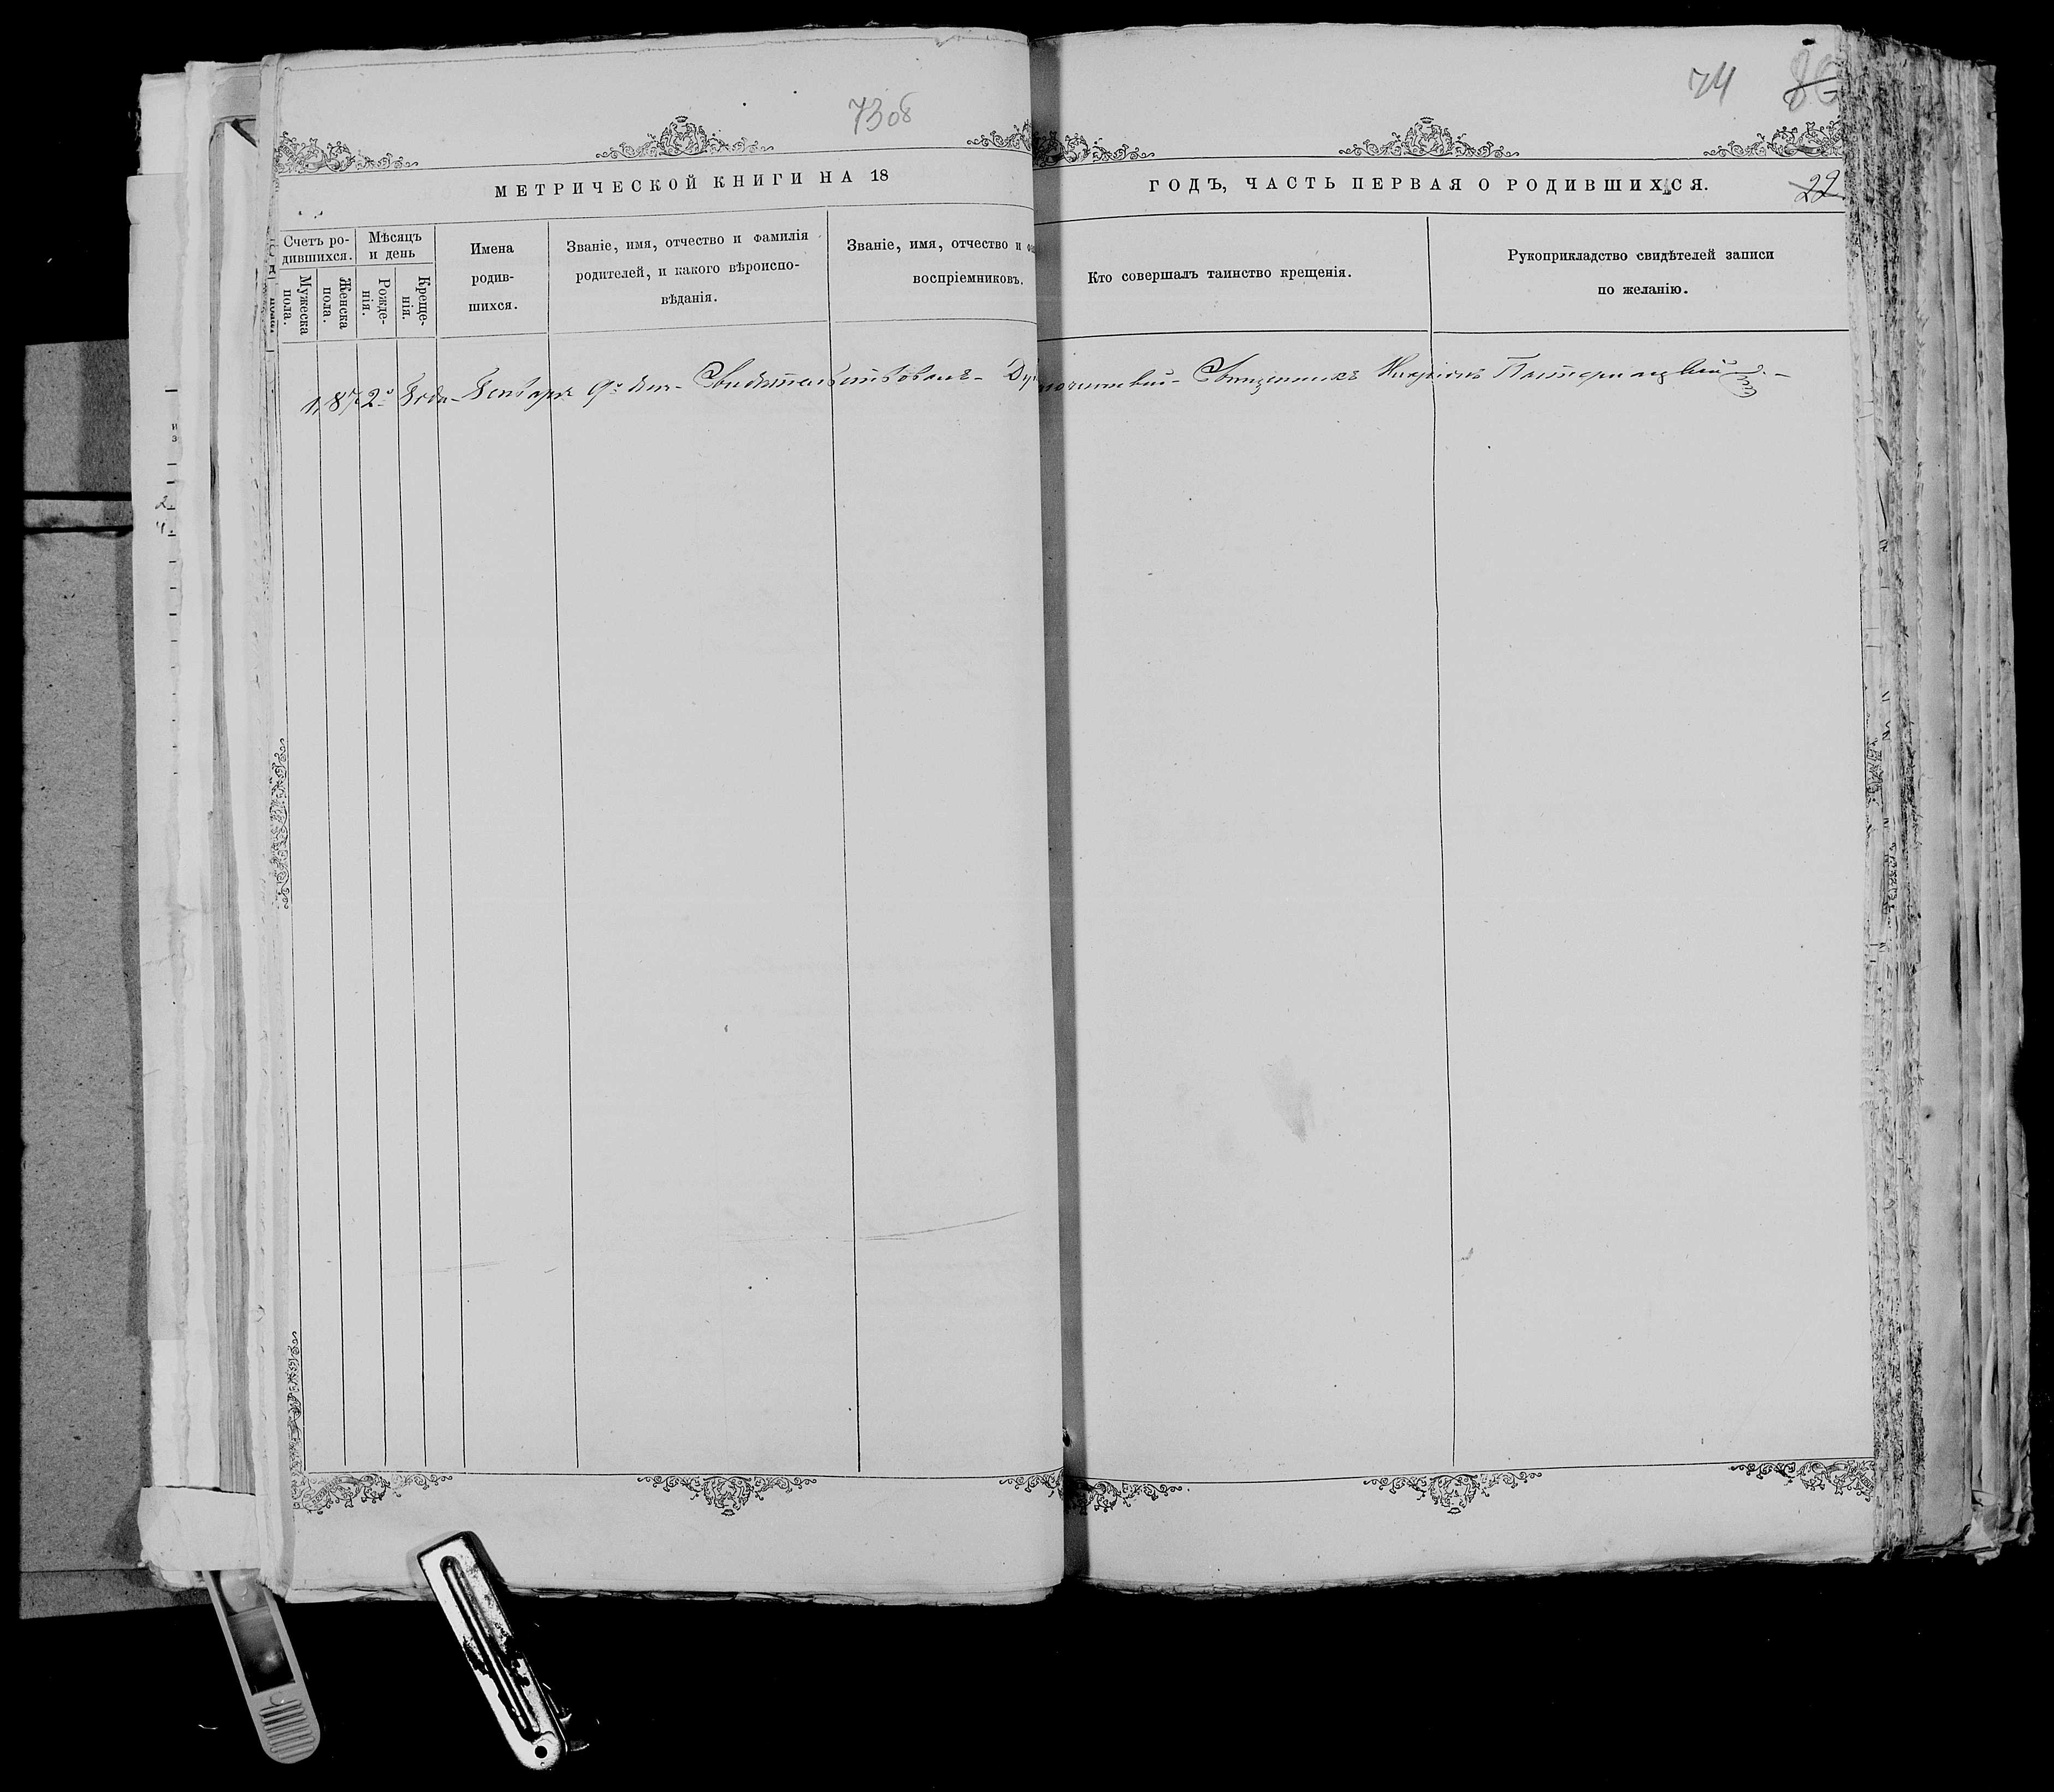 73 об
74
МЕТРИЧЕСКОЙ КНИГИ НА 18
ГОДЪ, ЧАСТЬ ПЕРВАЯ О РОДИВШИХСЯ.
22
Счетъ ро-
дившихся.
Мужеска
пола.
Женска
пола.
Мѣсяцъ
и день
Рожде-
нія.
Креще-
нія.
Имена
родив-
шихся.
Званіе, имя, отчество и фамилія
родителей, и какого вѣроиспо-
вѣданія.
Званіе, имя, отчество и
воспріемниковъ.
Кто совершалъ таинство крещенія.
Рукоприкладство свидѣтелей записи
по желанію.
1872 года Генваря 9 дня Свидѣтельствовалъ Священникъ